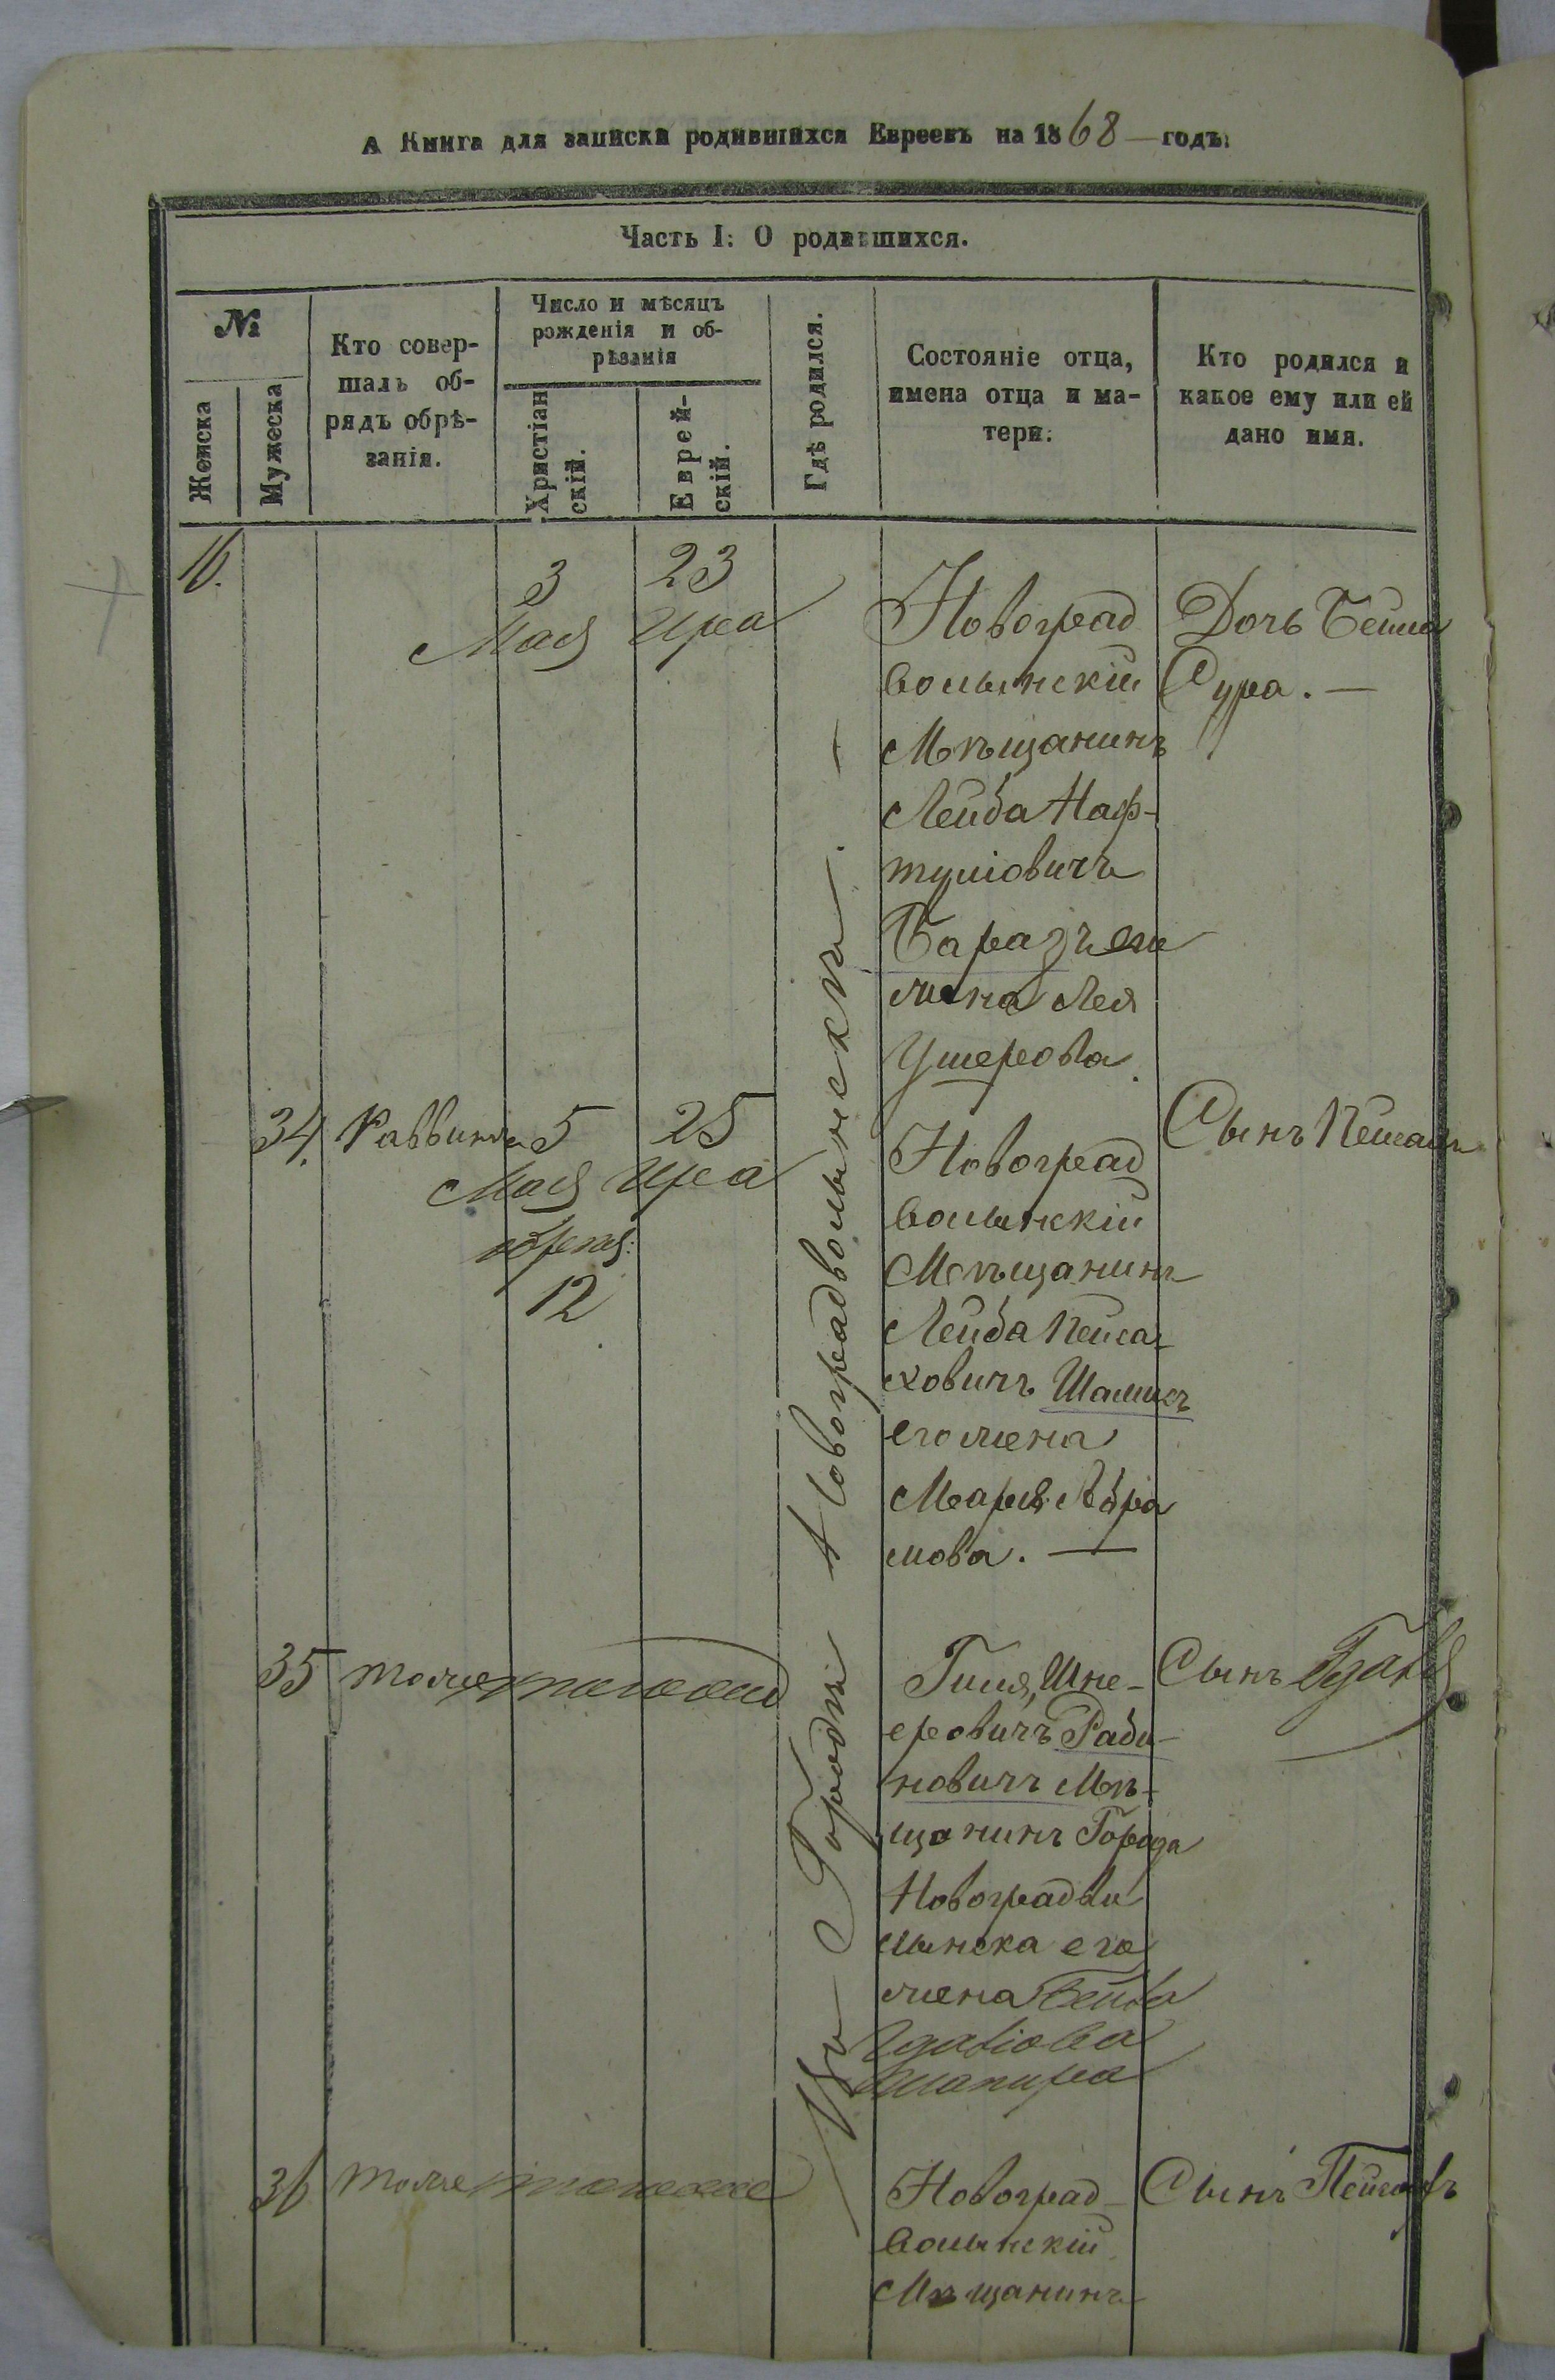 А Книга для записки родившихся Евреевъ на 1868 годъ.
Часть I: О родившихся.
№
Женска
Мужеска
Кто совер-
шалъ об-
рядъ обрѣ-
занія.
Число и мѣсяцъ
рожденія и об-
рѣзанія
Христіан
скій.
Еврей-
скій.
Гдѣ родился.
Состояніе отца,
имена отца и ма-
тери.
Кто родился и
какое ему или ей
дано имя.
16.
3
Мая
23
Ира
Въ Городѣ Новоградволынскѣ. —
Новоград
волынскій
Мѣщанинъ
Лейба Наф-
тулiовичъ
его
жена Лея
Ушерова.
Дочь Бейла
Сура. —
34.
Раввинъ
5
Мая
обрезан:
12
25
Ира
Новоград
волынскій
Мѣщанинъ
Лейба Пейса-
ховичъ Шамисъ
его жена
Марія Абра
мова. —
Сынъ Пейсахъ
35
тоже тогоже
Гиля, Шне-
еровичъ Раби-
новичъ Мѣ-
щанинъ Города
Новоградво
лынска его
жена Бейла
Шапира
Сынъ
36
тоже тогоже
Новоград-
волынскій
Мѣщанинъ
Сынъ